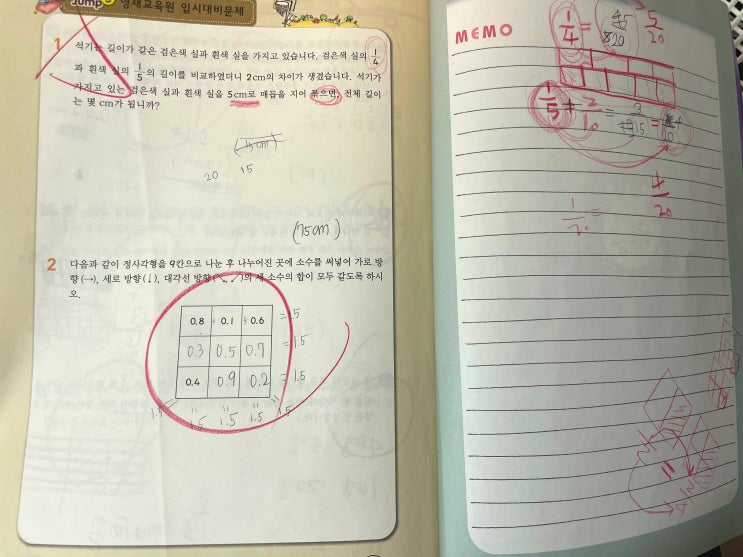 Jump
영재교육원 입시대비문제
1 석기는 길이가 같은 검은색 실과 흰색 실을 가지고 있습니다. 검은색 실의 1/4
과 흰색 실의 1/5의 길이를 비교하였더니 2cm의 차이가 생겼습니다. 석기가
가지고 있는 검은색 실과 흰색 실을 5cm로 매듭을 지어 묶으면, 전체 길이
는 몇 cm가 됩니까?
20 15
(75cm)
2 다음과 같이 정사각형을 9칸으로 나눈 후 나누어진 곳에 소수를 써넣어 가로 방
향(→), 세로 방향(↓), 대각선 방향(↘, ↙)의 세 소수의 합이 모두 같도록 하시
오.
0.8 + 0.1 + 0.6 = 1.5
0.3 0.5 0.7 = 1.5
0.4 0.9 0.2 = 1.5
1.5 1.5 1.5 1.5 1.5
MEMO
1/4 = 5/20
1/5
4/20
1/20 =